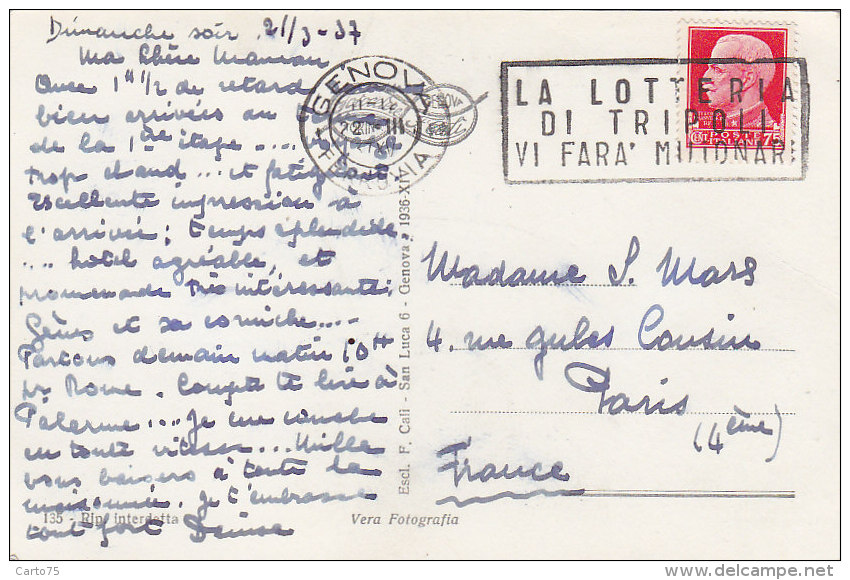 Dimanche soir 21/3-37
Ma Chère Maman
Avec 1h 1/2 de retard
bien arrivées au
de la 1ère étape....
trop chaud... et fatigant
Excellente impression à
l'arrivée; temps splendide
... hotel agréable, et
promenade très intéressante:
Gênes et sa corniche....
Partons demain matin 10H
pr Rome. Compte te lire à
Palerme... Je me couche
en toute vitesse... Mille
bons baisers à toute la
maisonnée. Je t'embrasse
tout fort Denise
135 - Rip. interdetta
Vera Fotografia
Escl. F. Calì - San Luca 6 - Genova - 1936-XIV
GENOVA
FERROVIA
LA LOTTERIA
DI TRIPOLI
VI FARA' MILIONARI
POSTE
ITALIANE
CENT 75
Madame S. Mars
4. rue Jules Cousin
Paris
(4ème)
France
Carto75
www.delcampe.net